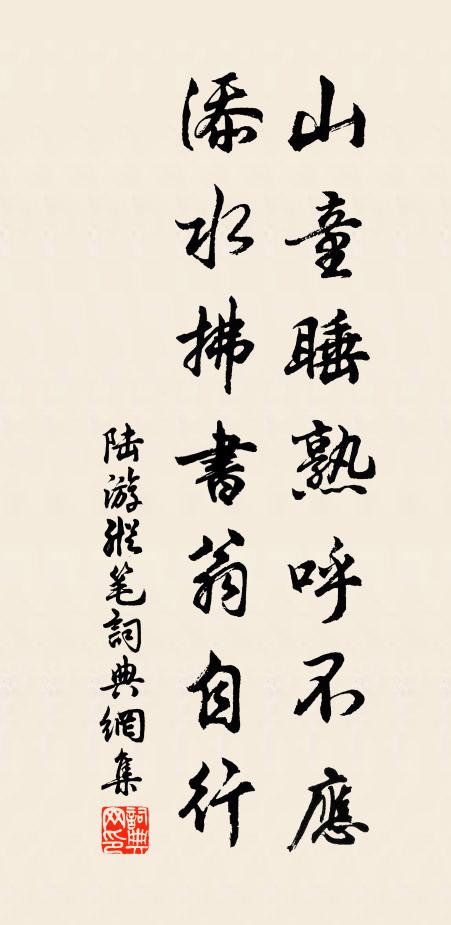 山童睡熟呼不應
添水拂書翁自行
陸游縱笔詞典網集
詞典网印